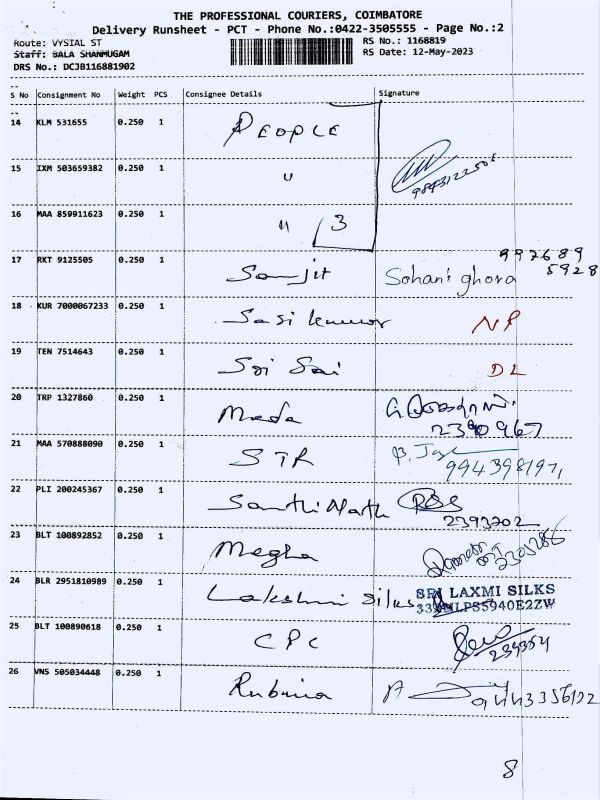 THE PROFESSIONAL COURIERS, COIMBATORE
Delivery Runsheet - PCT - Phone No.:0422-3505555 - Page No.:2
Route: VYSIAL ST RS No.: 1168819
Staff: BALA SHANMUGAM RS Date: 12-May-2023
DRS No.: DCJB116881902
S No Consignment No Weight PCS Consignee Details Signature
14 KLM 531655 0.250 1 PEOPLE
15 IXM 503659382 0.250 1 "
16 MAA 859911623 0.250 1 " 3
17 RKT 9125505 0.250 1 Somjit Sohani ghora 997689
5928
18 KUR 7000067233 0.250 1 Sasi kumar NP
19 TEN 7514643 0.250 1 Sri Sai DL
20 TRP 1327860 0.250 1 Mada
2390967
21 MAA 570888090 0.250 1 STR
22 PLI 200245367 0.250 1 Santhi Nath
2393202
23 BLT 100892852 0.250 1 Megha
24 BLR 2951810989 0.250 1 Lakshmi Silks SRI LAXMI SILKS
25 BLT 100890618 0.250 1 CPC
26 VNS 505034448 0.250 1 Rubina
8